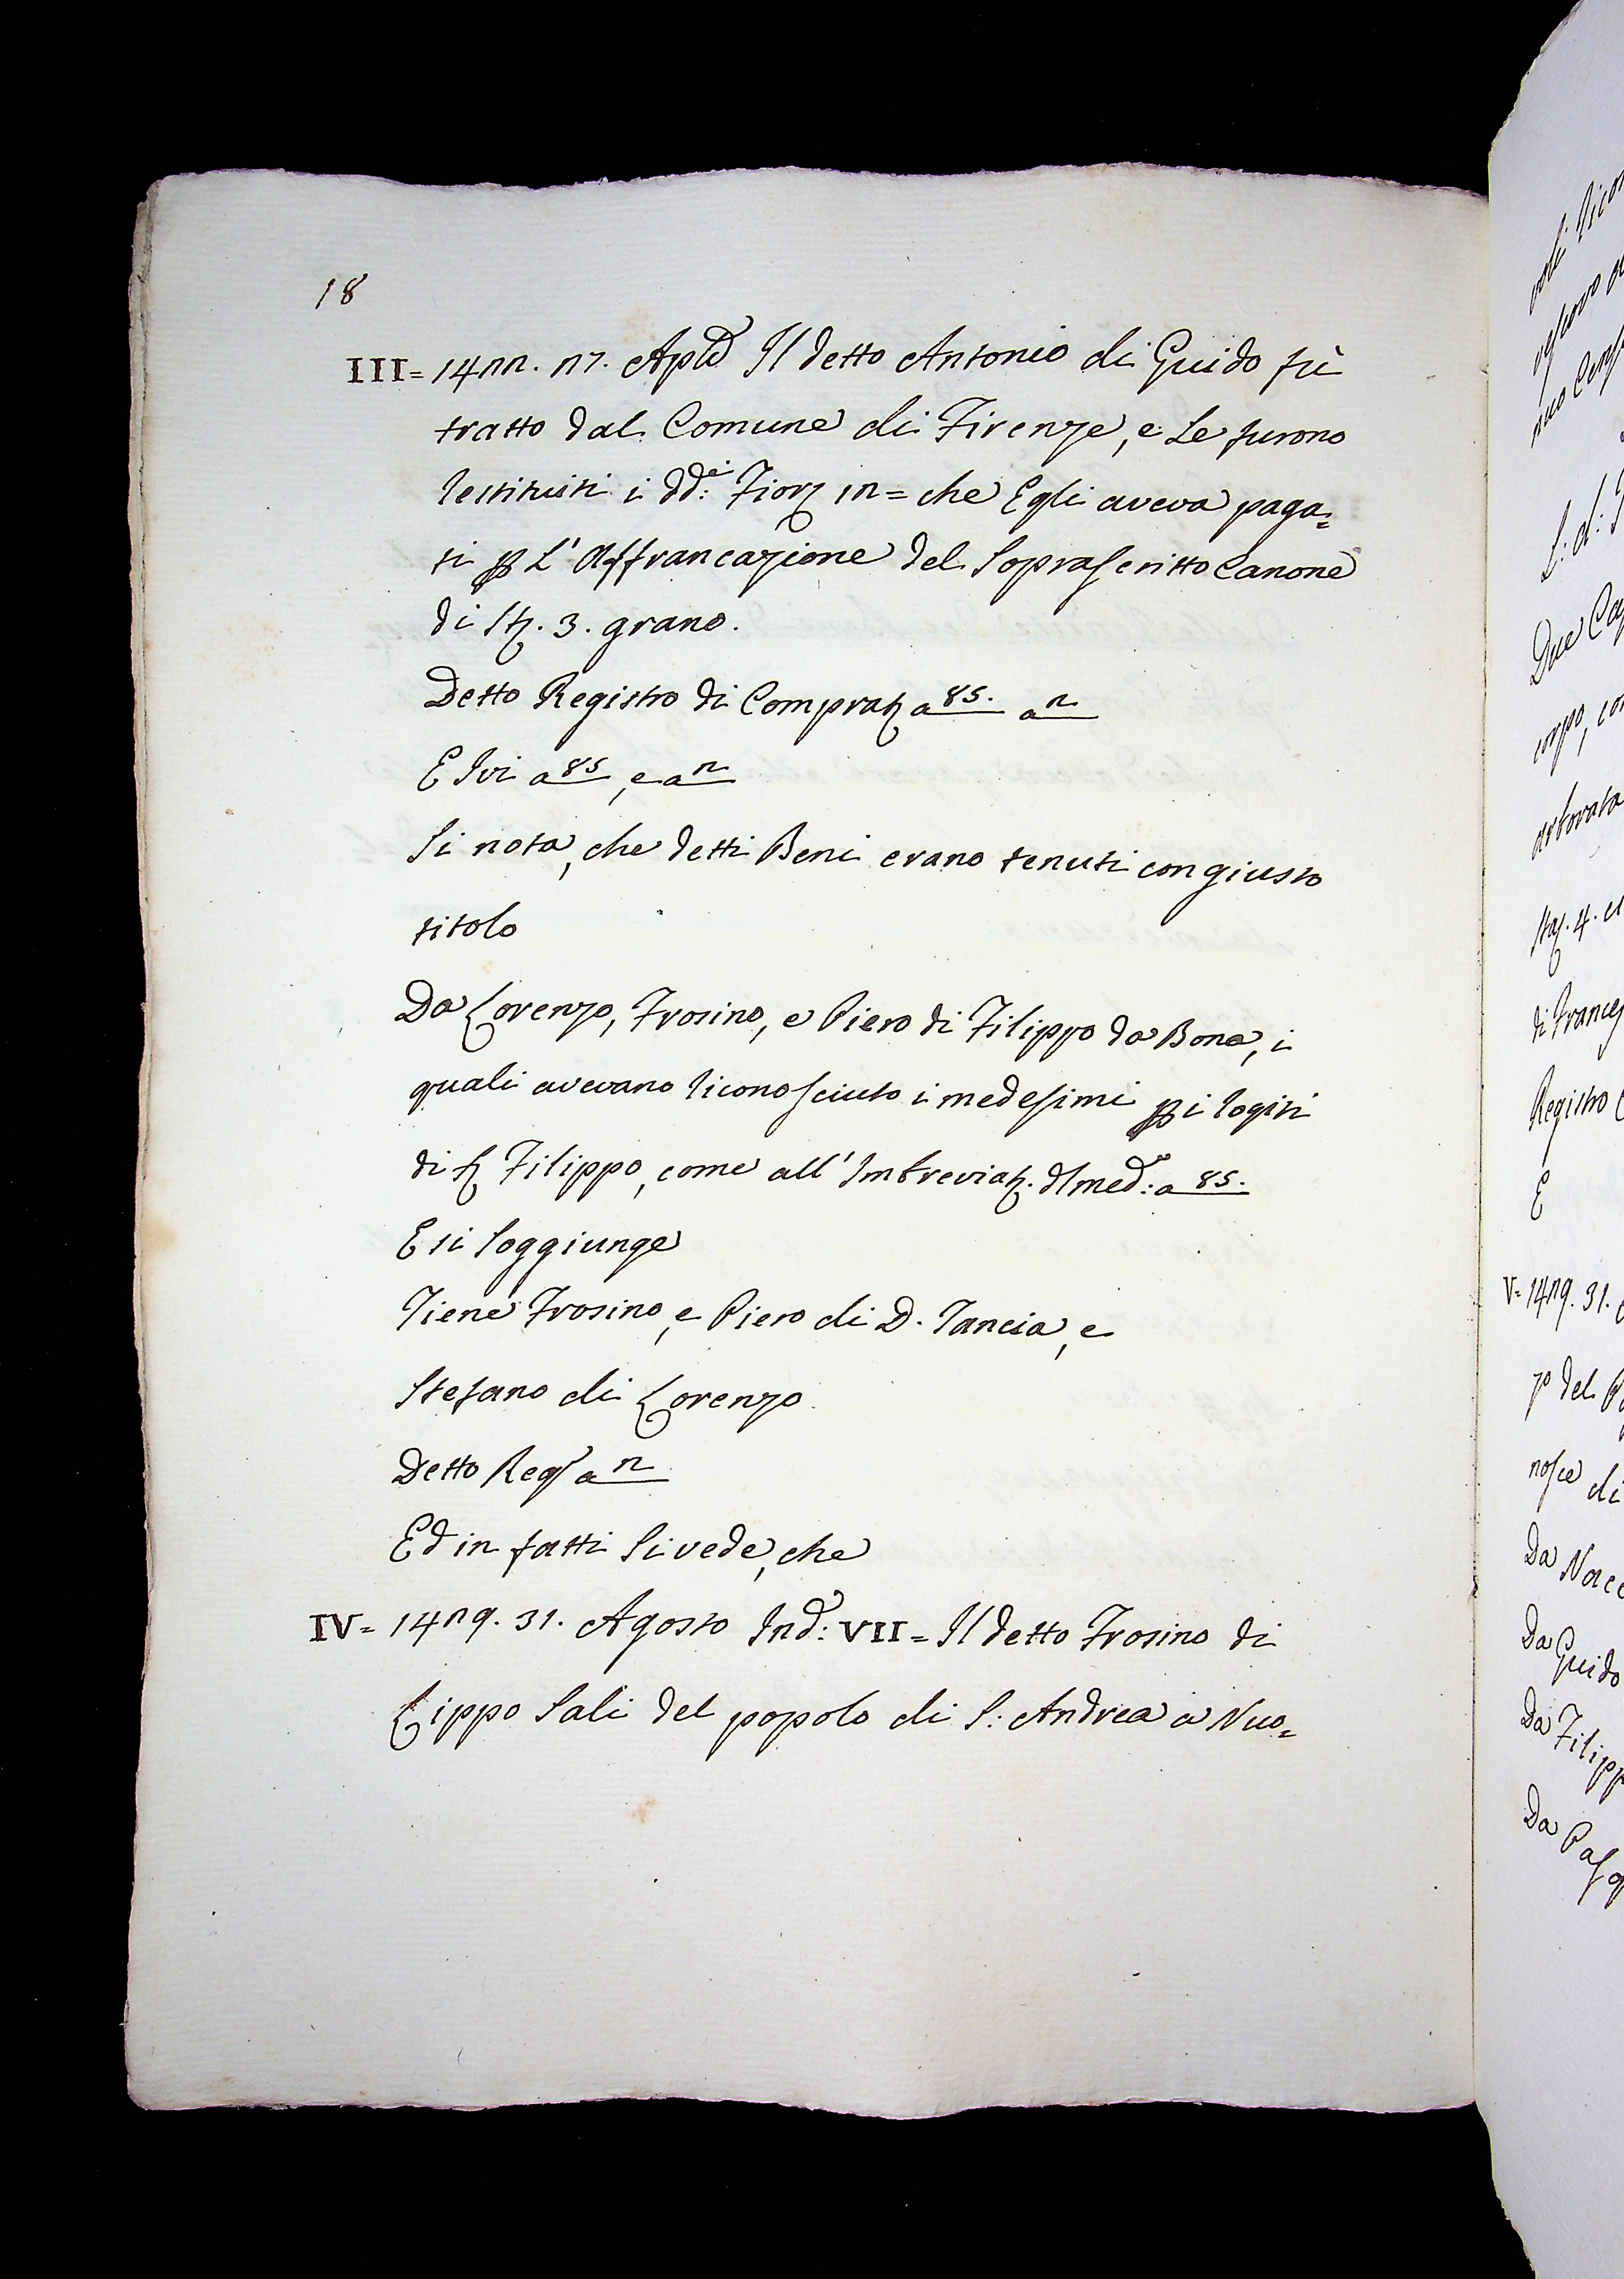 18
III= 1422. 27. Aple Il detto Antonio di Guido fù
tratto dal Comune di Firenze, e Le furono
restituiti i dd.i Fior 12= che Egli aveva paga=
ti p L'Affrancazione del Soprascritto Canone
di St. 3. grano.
Detto Registro di Compraz a 85. a 2
E Ivi a 85, e a 2
Si nota, che detti Beni erano tenuti con giusto
titolo
Da Lorenzo, Frosino, e Piero di Filippo da Bona, i
quali avevano riconosciuto i medesimi p i rogiti
di S Filippo, come all'Imbreviaz. dl med: a 85.
E si soggiunge
Tiene Frosino, e Piero di D. Tancia, e
Stefano di Lorenzo
Detto Reg a 2
Ed in fatti si vede, che
IV= 1429. 31. Agosto Ind: VII= Il detto Frosino di
Lippo Sali del popolo di S: Andrea a Nuo=
Due
corpo,
arborata
4.
Registro
E
V= 1429. 31.
zo del
nosce di
Da
Da Guido
Da
Da